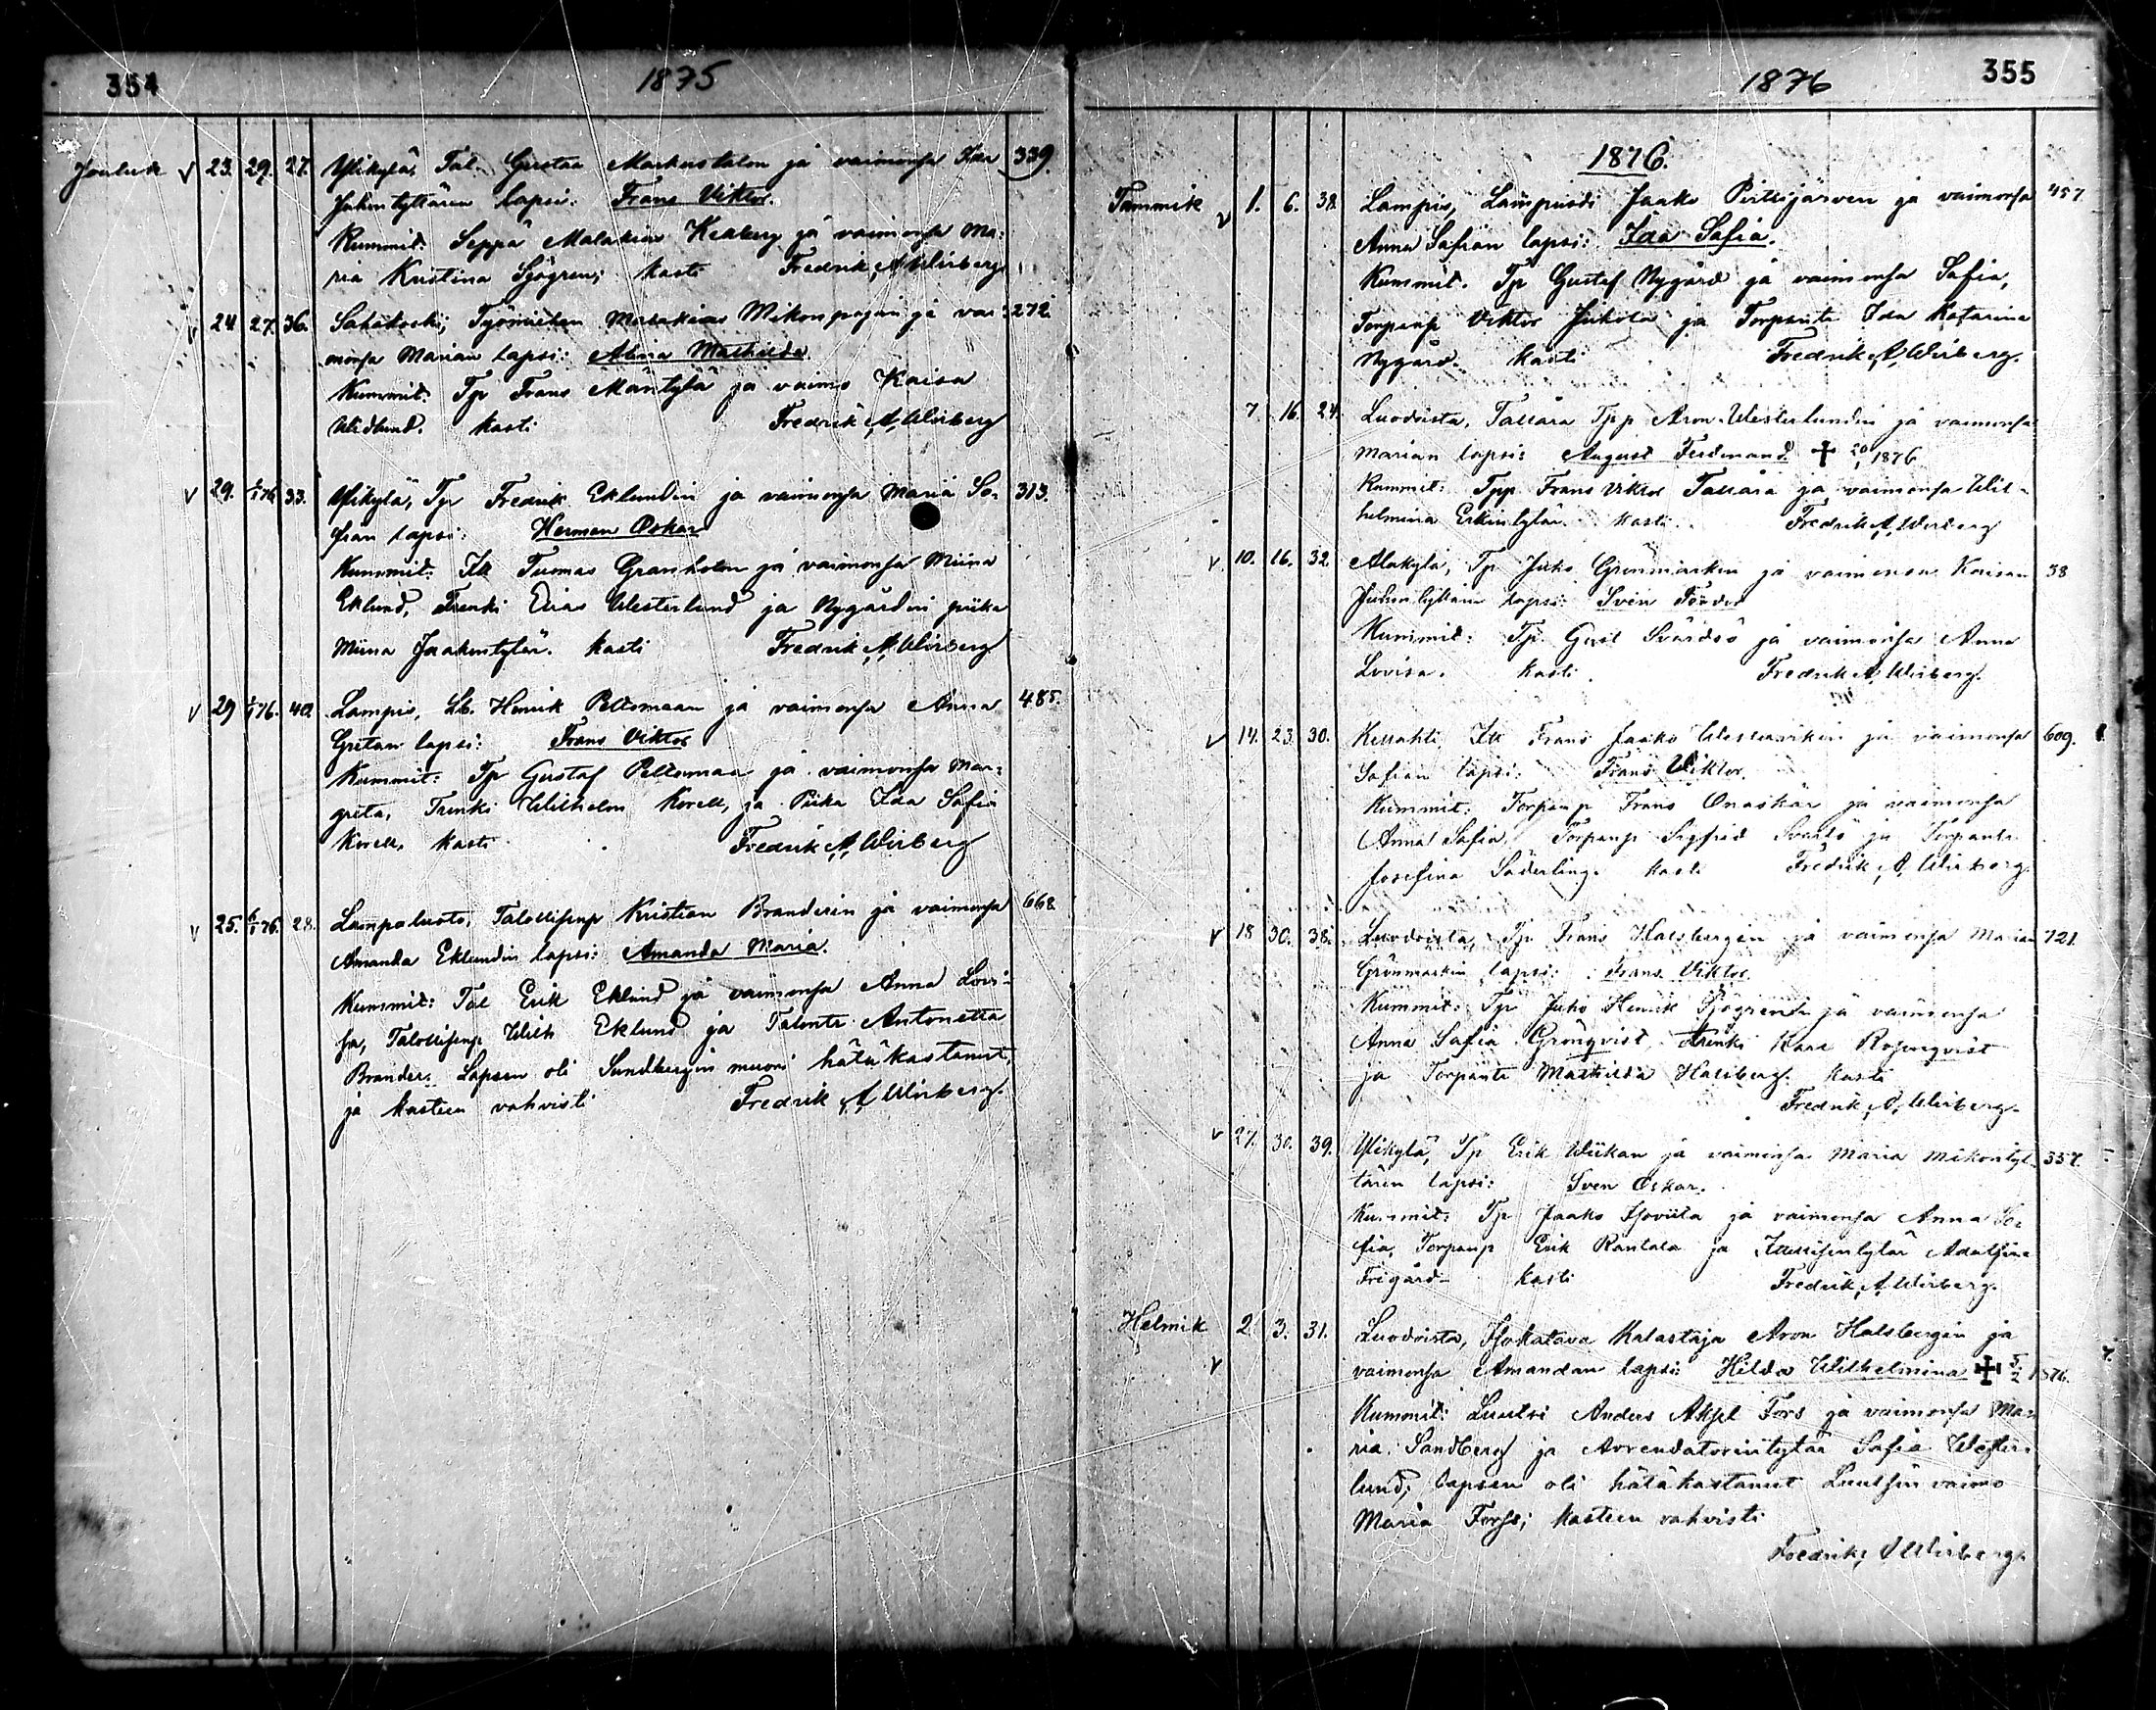 354
1875
Jouluk v 23. 29. 27. Ylikylä, Tal. Gustaa Markustalon ja vaimonsa Ida 339.
Juhontyttären lapsi: Frans Viktor.
Kummit. Seppä Malakias ja vaimonsa Ma-
ria Kristina Sjögren; kasti Fredrik A. Wirberg
v 24 27. 36. Sahakoski, Työmiehen Malakias Mikonpojan ja vai- 272.
monsa Marian lapsi: Alina Mathilda.
Kummit. Tp Frans Mäntylä ja vaimo Kaisa
Widlund. kasti Fredrik A. Wirberg
v 29. 2/1 76 33. Ylikylä, Tp Fredrik Eklundin ja vaimonsa Maria So- 313.
fian lapsi: Herman Oskar
Kummit. Itl Tuomas Granholm ja vaimonsa Miina
Eklund, Trenki Elias Westerlund ja Nygårdin piika
Miina Jaakontytär. kasti Fredrik A. Wirberg
v 29 1/1 76. 40. Lampis, Lb. Henrik Peltomaan ja vaimonsa Anna 485.
Gretan lapsi: Frans Viktor
Kummit: Tp Gustaf Peltomaa ja vaimonsa Mar-
greta, Trenki Wilhelm Korell, ja Piika Ida Safia
Korell, kasti Fredrik A. Wirberg
v 25. 6/1 76. 28. Lampaluoto, Talollisenp Kristian Branderin ja vaimonsa 668
Amanda Eklundin lapsi: Amanda Maria.
Kummit: Tal Erik Eklund ja vaimonsa Anna Lovi-
sa, Talollisenp Wilh Eklund ja Talontr Antonetta
Brander. Lapsen oli Sundbergin muori hätäkastanut,
ja kasteen vahvisti Fredrik A. Wirberg.
1876
355
1876.
Tammik v 1. 6. 38. Lampis, Lampuodi Jaako Pirttijärven ja vaimonsa 457
Anna Safian lapsi: Ida Safia.
Kummit. Tp Gustaf Nygård ja vaimonsa Safia,
Torpanp Viktor Jukola ja Torpantr Ida Katarina
Nygård. kasti Fredrik A. Wirberg.
7. 16. 24. Luodoista, Tallära Tpp Aron Westerlundin ja vaimonsa
Marian lapsi: August Ferdinand ✝ 20/1 1876
Kummit: Tpp Frans Viktor Tallära ja vaimonsa Wil-
helmina Erkintytär. kasti Fredrik A. Wirberg
v 10. 16. 32. Alakylä, Tp Juho Grönmarkin ja vaimonsa Kaisan 38
Juhontyttären lapsi: Sven
Kummit: Tp Gust Svärdsö ja vaimonsa Anna
Lovisa. kasti. Fredrik A. Wirberg.
v 14. 23. 30. Kellahti Itl Frans Jaako ja vaimonsa 609.
Safian lapsi: Frans Wiktor.
Kummit: Torpanp Frans Onaskär ja vaimonsa
Anna Safia, Torpanp Sigfrid ja Torpantr
Josefina Söderling. kasti Fredrik A. Wirberg
v 18 30. 38. Luodoista, Tp Frans Halsbergin ja vaimonsa Marian 721.
Grönmarkin lapsi: Frans Viktor.
Kummit: Tp Juho Henrik Sjögren ja vaimonsa
Anna Safia Grönqvist, Trenki Kaar Rosenqvist
ja Torpantr Mathilda Halsberg. kasti
Fredrik A. Wirberg.
v 27. 30. 39. Ylikylä, Tp Erik Wiikan ja vaimonsa Maria Mikontyt- 357.
tären lapsi: Sven Oskar.
Kummit: Tp Jaako Isoviita ja vaimonsa Anna So-
fia, Torpanp Erik Rantala ja Itsellisentytär Adolfina
Frigård. kasti Fredrik A. Wirberg.
Helmik v 2. 3. 31. Luodoista, Kalastaja Aron Halsbergin ja
vaimonsa Amandan lapsi: Hilda Wilhelmina ✝ 5/2 1876.
Kummit: Luutsi Anders Aksel Fors ja vaimonsa Ma-
ria Sandberg ja Arrendatorintytär Safia Wester-
lund; lapsen oli hätäkastanut Luutsin vaimo
Maria Forss; kasteen vahvisti
Fredrik A. Wirberg.